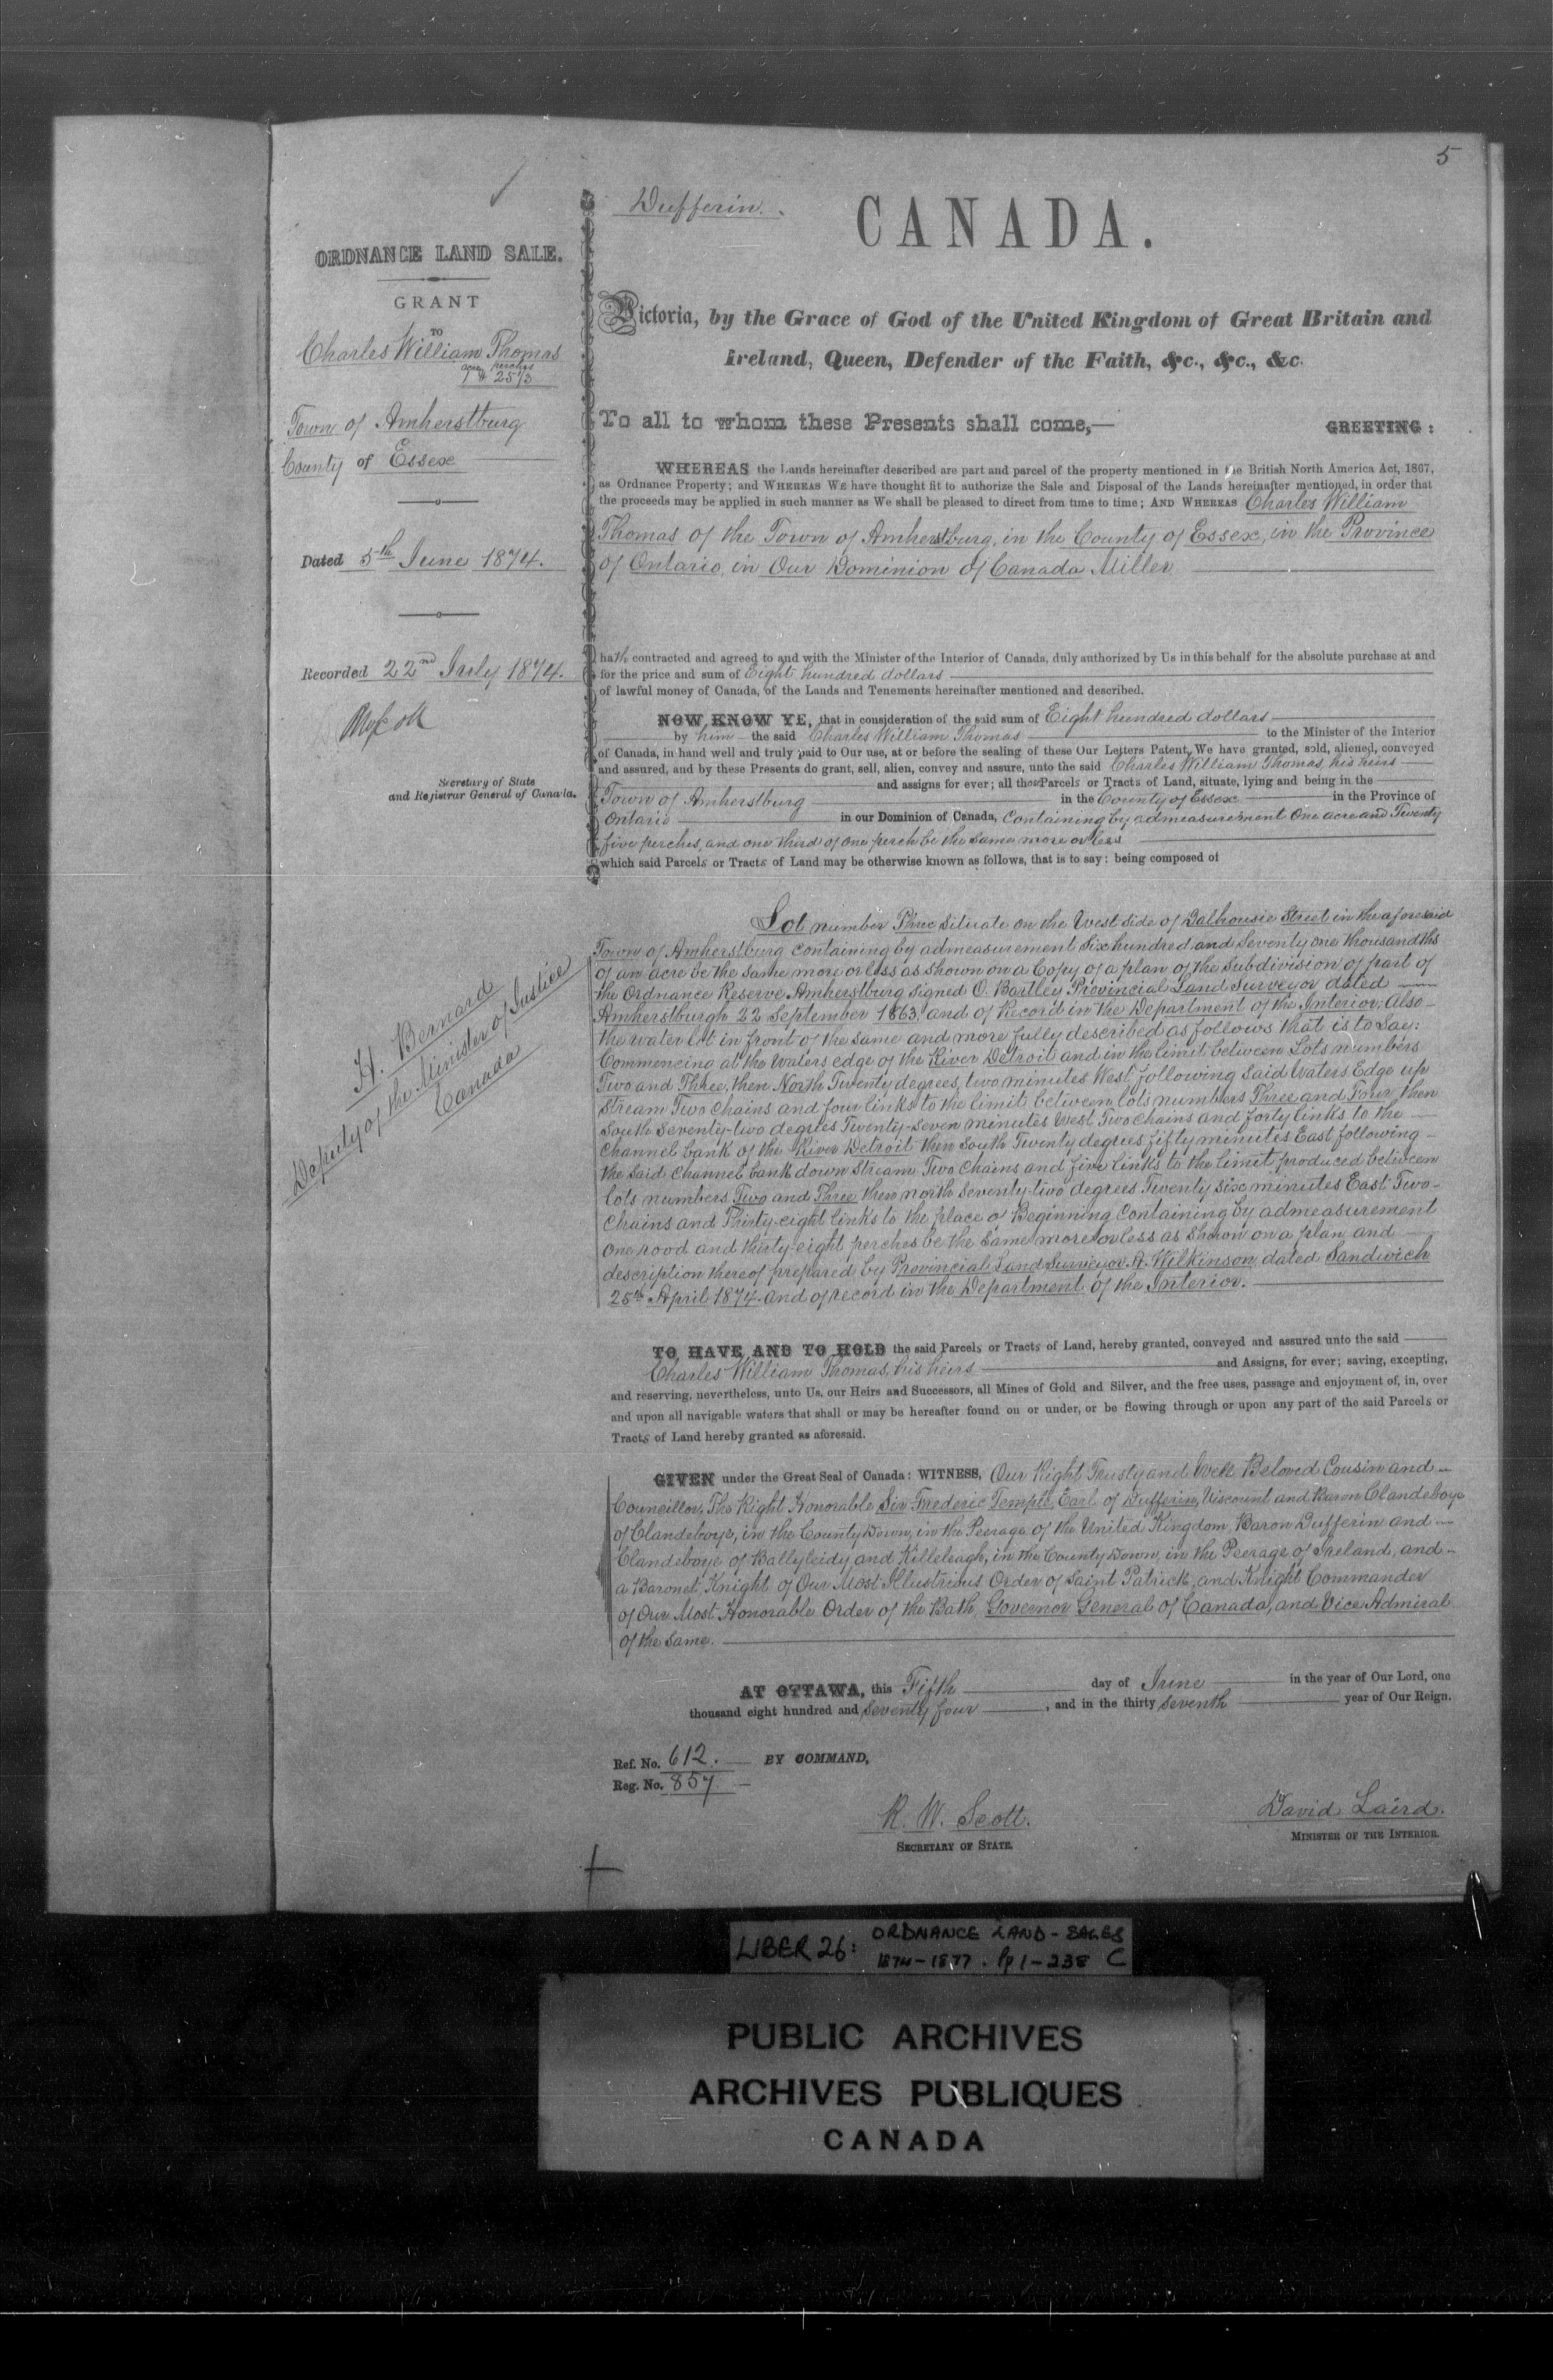 5
ORDNANCE LAND SALE.
GRANT
TO
Charles William Thomas
acre perches
1 " 25 1/3
Town of Amherstburg
County of Essex
Dated 5th June 1874.
Recorded 22nd July 1874.
Secretary of State
and Registrar General of Canada.
H. Bernard
Deputy of the Minister of Justice
Canada
Dufferin.
CANADA.
Victoria, by the Grace of God of the United Kingdom of Great Britain and
Ireland, Queen, Defender of the Faith, &c., &c., &c.
To all to whom these Presents shall come,—
GREETING:
WHEREAS the Lands hereinafter described are part and parcel of the property mentioned in the British North America Act, 1867,
as Ordnance Property; and WHEREAS WE have thought fit to authorize the Sale and Disposal of the Lands hereinafter mentioned, in order that
the proceeds may be applied in such manner as We shall be pleased to direct from time to time; AND WHEREAS Charles William
Thomas of the Town of Amherstburg, in the County of Essex, in the Province
of Ontario, in Our Dominion of Canada Miller
hath contracted and agreed to and with the Minister of the Interior of Canada, duly authorized by Us in this behalf for the absolute purchase at and
for the price and sum of Eight hundred dollars
of lawful money of Canada, of the Lands and Tenements hereinafter mentioned and described.
NOW KNOW YE, that in consideration of the said sum of Eight hundred dollars
by him the said Charles William Thomas to the Minister of the Interior
of Canada, in hand well and truly paid to Our use, at or before the sealing of these Our Letters Patent, We have granted, sold, aliened, conveyed
and assured, and by these Presents do grant, sell, alien, convey and assure, unto the said Charles William Thomas, his heirs
and assigns for ever; all those Parcels or Tracts of Land, situate, lying and being in the
Town of Amherstburg in the County of Essex in the Province of
Ontario in our Dominion of Canada, Containing by admeasurement One acre and Twenty
five perches, and one third of one perch be the same more or less
which said Parcels or Tracts of Land may be otherwise known as follows, that is to say: being composed of
Lot number Three situate on the West side of Dalhousie Street in the aforesaid
Town of Amherstburg containing by admeasurement Six hundred and Seventy one thousandths
of an acre be the same more or less as shown on a Copy of a plan of the Subdivision of part of
the Ordnance Reserve Amherstburg signed O. Bartley Provincial Land Surveyor dated
Amherstburgh 22 September 1863, and of Record in the Department of the Interior; Also
the water lot in front of the same and more fully described as follows that is to Say:
Commencing at the waters edge of the River Detroit and in the limit between Lots numbers
Two and Three, then North Twenty degrees, two minutes West following Said waters Edge up
Stream Two Chains and four links to the limit between lots numbers Three and Four, then
South Seventy-two degrees Twenty-seven minutes West Two chains and forty links to the
Channel bank of the River Detroit then South Twenty degrees fifty minutes East following
the said Channel bank down Stream Two Chains and five links to the limit produced between
lots numbers Two and Three then north Seventy-two degrees Twenty six minutes East Two
Chains and Thirty-eight links to the place of Beginning Containing by admeasurement
one rood and thirty-eight perches be the same more or less as Shown on a plan and
description thereof prepared by Provincial Land Surveyor A. Wilkinson, dated Sandwich
25th April 1874. and of record in the Department of the Interior.
TO HAVE AND TO HOLD the said Parcels or Tracts of Land, hereby granted, conveyed and assured unto the said
Charles William Thomas, his heirs and Assigns, for ever; saving, excepting,
and reserving, nevertheless, unto Us, our Heirs and Successors, all Mines of Gold and Silver, and the free uses, passage and enjoyment of, in, over
and upon all navigable waters that shall or may be hereafter found on or under, or be flowing through or upon any part of the said Parcels or
Tracts of Land hereby granted as aforesaid.
GIVEN under the Great Seal of Canada: WITNESS, Our Right Trusty and Well Beloved Cousin and
Councillor, The Right Honorable Sir Frederic Temple, Earl of Dufferin, Viscount and Baron Clandeboye
of Clandeboye, in the County Down, in the Peerage of the United Kingdom, Baron Dufferin and
Clandeboye of Ballyleidy and Killeleagh, in the County Down, in the Peerage of Ireland, and
a Baronet, Knight of Our Most Illustrious Order of Saint Patrick, and Knight Commander
of Our Most Honorable Order of the Bath, Governor General of Canada, and Vice Admiral
of the same.
AT OTTAWA, this Fifth day of June in the year of Our Lord, one
thousand eight hundred and Seventy four, and in the thirty seventh year of Our Reign.
Ref. No. 612. BY COMMAND,
Reg. No. 857.
R. W. Scott.
SECRETARY OF STATE.
David Laird.
MINISTER OF THE INTERIOR.
LIBER 26: ORDNANCE LAND - SALES
1874-1877. pp 1-238 C
PUBLIC ARCHIVES
ARCHIVES PUBLIQUES
CANADA